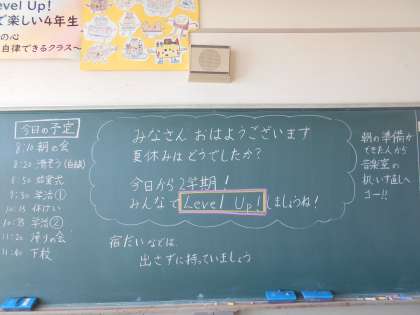 Level Up!
で楽しい4年生
の心
自律できるクラス～
今日の予定
8:10 朝の会
8:20 清そう(自編)
8:50 始業式
9:30 学活①
10:15 休けい
10:35 学活②
11:20 帰りの会
11:40 下校
みなさん おはようございます
夏休みはどうでしたか？
今日から2学期！
みんなで Level Up! しましょうね！
宿だいなどは、
出さずに持っていましょう
朝の準備が
できた人から
音楽室の
机・いす運びへ
ゴー!!